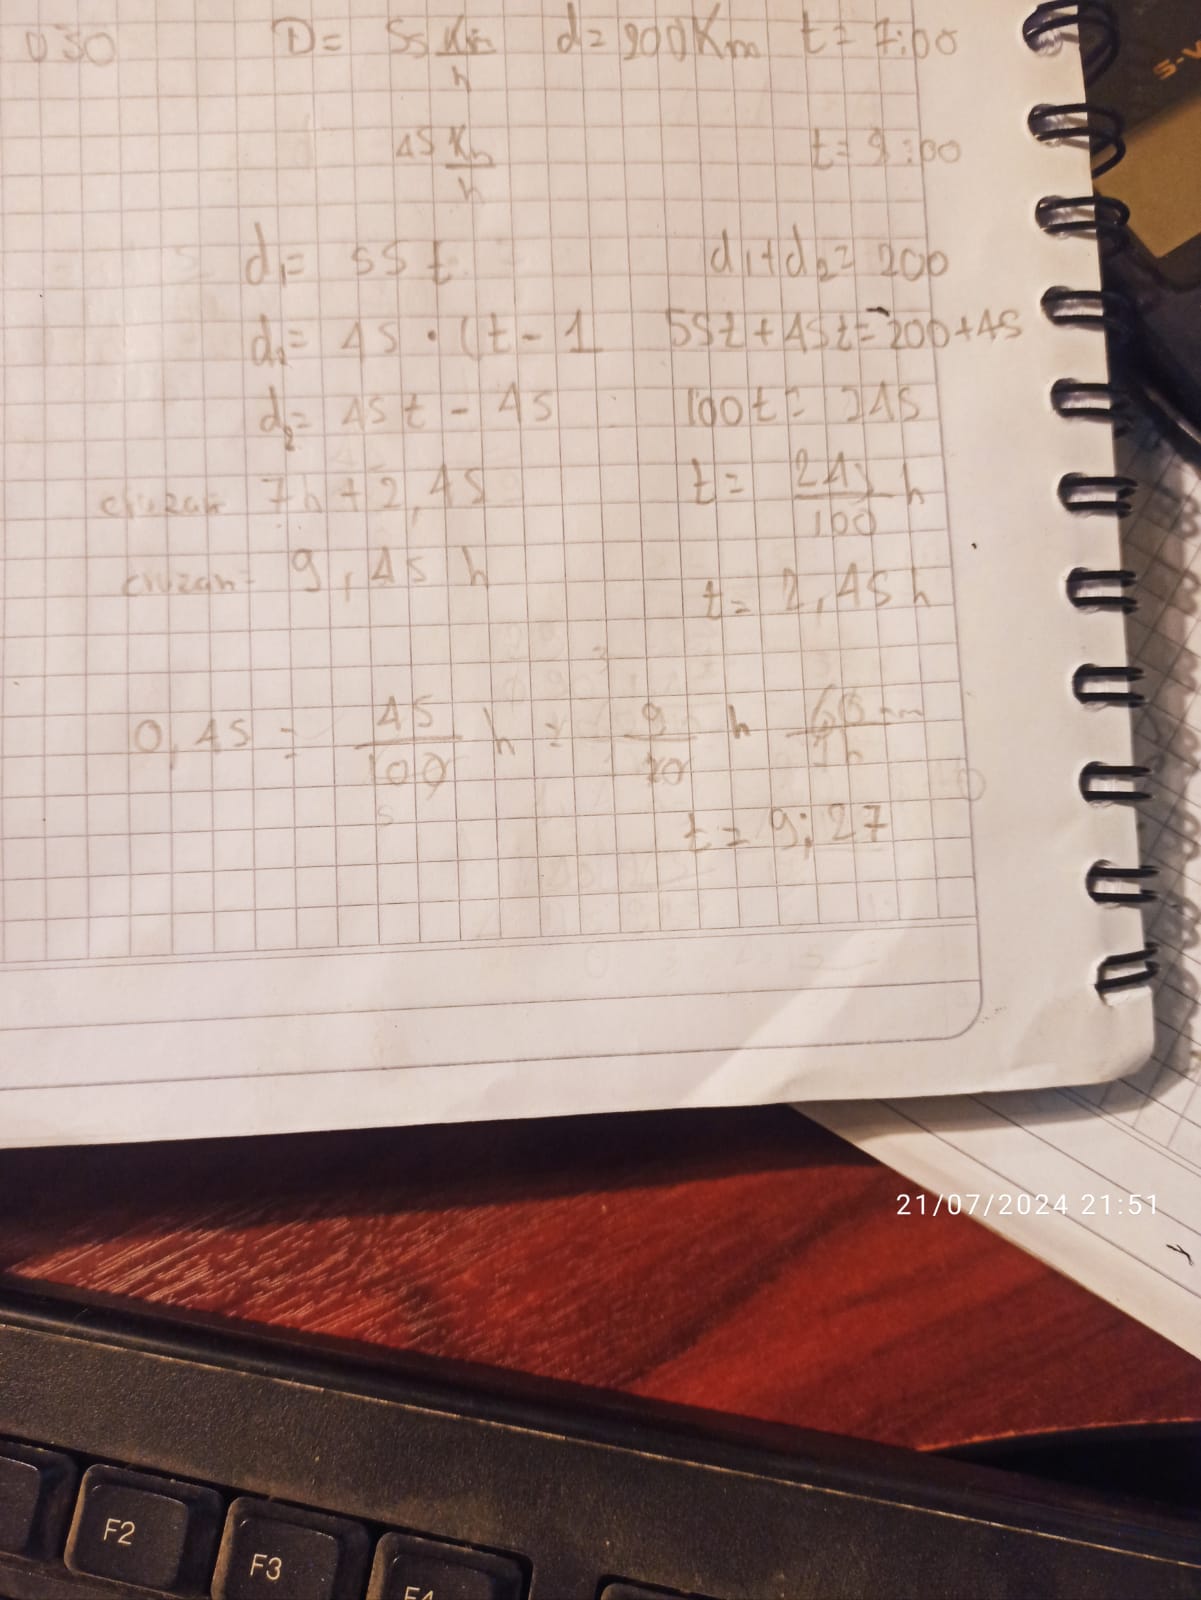 030 D= 55 Km/h d= 200Km t= 7:00
45 Km/h t= 9:00
d1= 55 t d1+d2= 200
d2= 45 · (t-1 55t+45t=200+45
d2= 45t - 45 100t= 245
cruzan 7h+2,45 t= 245/100 h
cruzan= 9,45 h t= 2,45h
0,45 = 45/100 h = 9/20 h 60/1h
5
t= 9:27
21/07/2024 21:51
F2
F3
F4